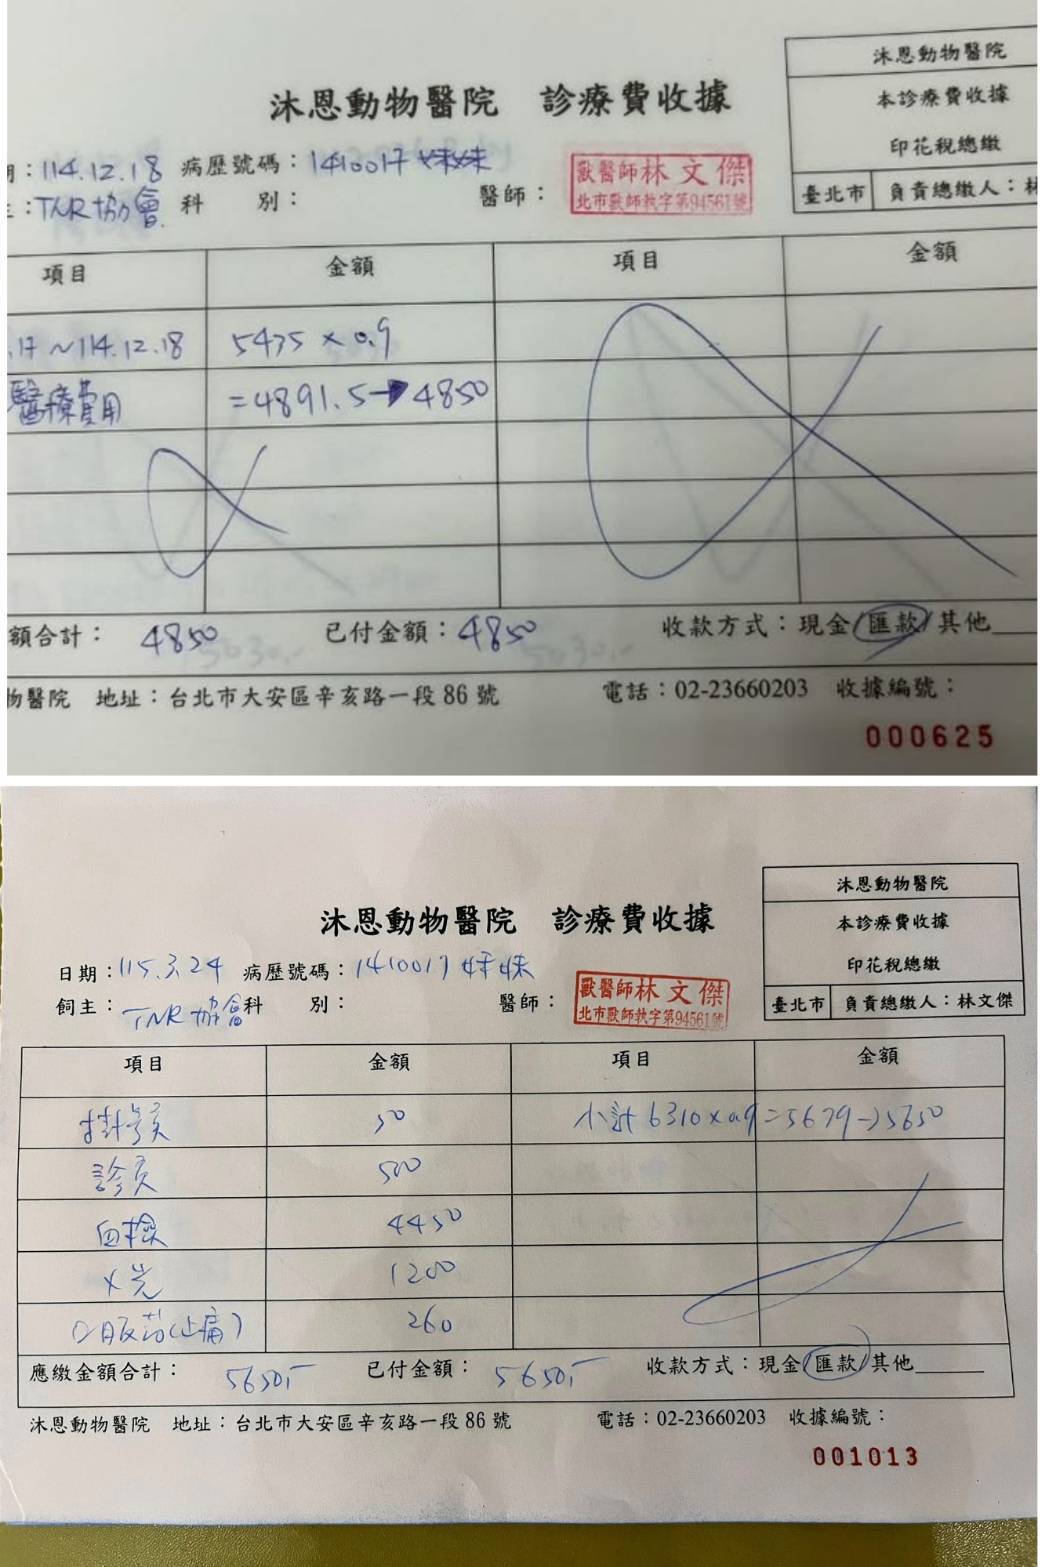 沐恩動物醫院 診療費收據
沐恩動物醫院
本診療費收據
印花稅總繳
臺北市 負責總繳人：林
：114.12.18 病歷號碼：1410017 妹妹
：TNR協會 科 別： 醫師：
獸醫師林文傑
北市獸師執字第94561號
項目 金額 項目 金額
.17～114.12.18 5435 × 0.9
醫療費用 =4891.5→4850
額合計： 4850 已付金額：4850 收款方式：現金/匯款/其他
物醫院 地址：台北市大安區辛亥路一段86號 電話：02-23660203 收據編號：
000625
沐恩動物醫院 診療費收據
沐恩動物醫院
本診療費收據
印花稅總繳
臺北市 負責總繳人：林文傑
日期：115.3.24 病歷號碼：1410017 妹妹
飼主：TNR協會 科 別： 醫師：
獸醫師林文傑
北市獸師執字第94561號
項目 金額 項目 金額
掛號費 50 小計 6310×0.9=5679→5650
診費 500
血檢 4450
X光 1200
口服藥(止痛) 260
應繳金額合計： 5650,- 已付金額： 5650,- 收款方式：現金/匯款/其他
沐恩動物醫院 地址：台北市大安區辛亥路一段86號 電話：02-23660203 收據編號：
001013